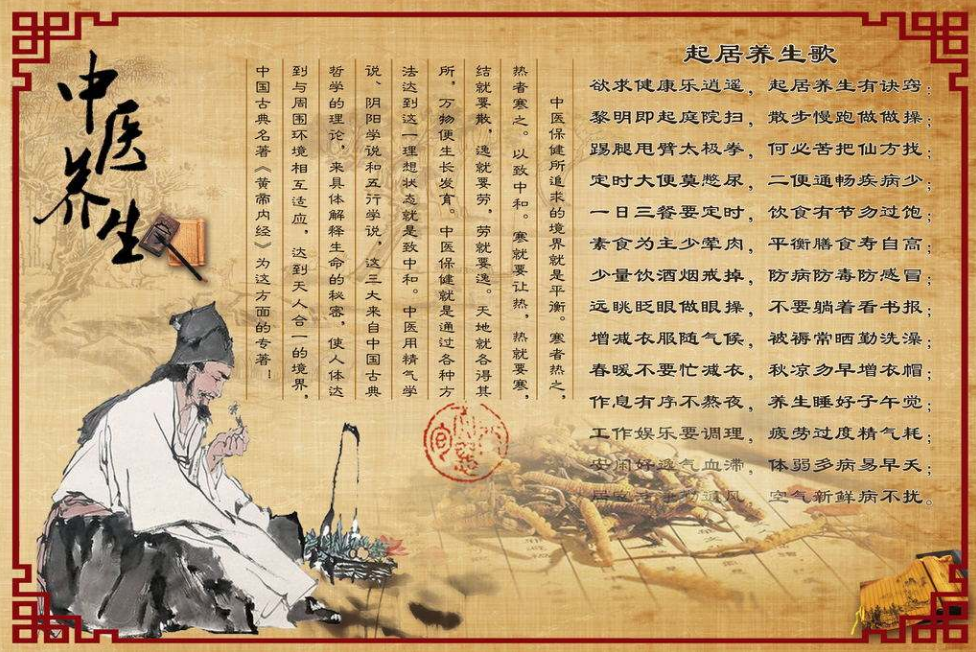 中医养生
中医保健所追求的境界就是平衡。寒者热之，
热者寒之。以致中和。寒就要让热，热就要寒，
结就要散，逸就要劳，劳就要逸。天地就各得其
所，万物便生长发育。中医保健就是通过各种方
法达到这一理想状态就是致中和。中医用精气学
说、阴阳学说和五行学说，这三大来自中国古典
哲学的理论，来具体解释生命的秘密，使人体达
到与周围环境相互适应，达到天人合一的境界，
中国古典名著《黄帝内经》为这方面的专著！
起居养生歌
欲求健康乐逍遥，起居养生有诀窍；
黎明即起庭院扫，散步慢跑做做操；
踢腿甩臂太极拳，何必苦把仙方找；
定时大便莫憋尿，二便通畅疾病少；
一日三餐要定时，饮食有节勿过饱；
素食为主少荤肉，平衡膳食寿自高；
少量饮酒烟戒掉，防病防毒防感冒；
远眺眨眼做眼操，不要躺着看书报；
增减衣服随气候，被褥常晒勤洗澡；
春暖不要忙减衣，秋凉勿早增衣帽；
作息有序不熬夜，养生睡好子午觉；
工作娱乐要调理，疲劳过度精气耗；
安闲好逸气血滞，体弱多病易早夭；
居室洁净勤通风，空气新鲜病不扰。